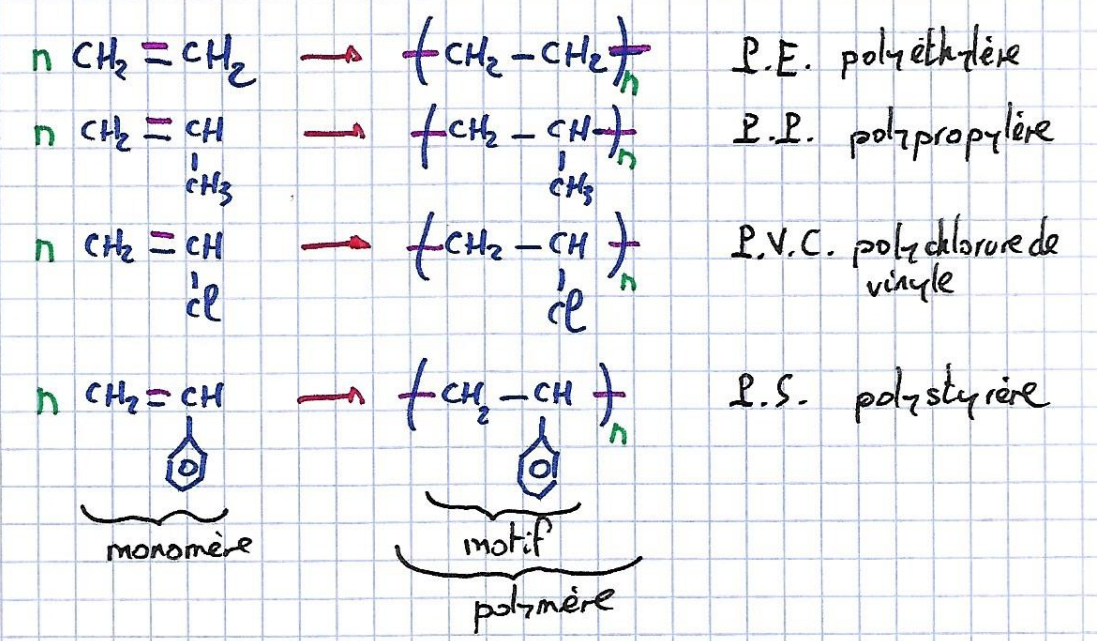 n CH₂ = CH₂ → ( CH₂ – CH₂ )n P.E. polyéthylène
n CH₂ = CH → ( CH₂ – CH )n P.P. polypropylène
CH₃ CH₃
n CH₂ = CH → ( CH₂ – CH )n P.V.C. polychlorure de
Cl Cl vinyle
n CH₂ = CH → ( CH₂ – CH )n P.S. polystyrène
monomère motif
polymère